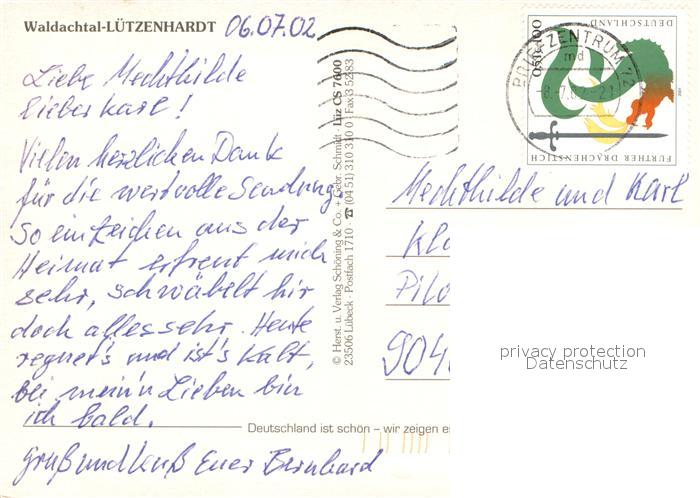 Waldachtal-LÜTZENHARDT 06.07.02
Liebe Mechthilde
lieber Karl!
Vielen herzlichen Dank
für die wertvolle Sendung.
So ein Zeichen aus der
Heimat erfreut mich
sehr, schwäbelt hir
doch alles sehr. Heute
regnet's und ist's kalt,
bei mein'n Lieben bin
ich bald.
Gruß und Kuß Euer Bernhard
© Herst. u. Verlag Schöning & Co. + Gebr. Schmidt · Lüz CS 7600
23506 Lübeck · Postfach 1710 · ☎ (04 51) 310 310 · Fax 3 52 83
Deutschland ist schön – wir zeigen es
BRIEFZENTRUM 72
md
-8.7.02-21
DEUTSCHLAND
0,51€ 100
FURTHER DRACHENSTICH
2001
Mechthilde und Karl
Klo
Pilo
904
privacy protection
Datenschutz